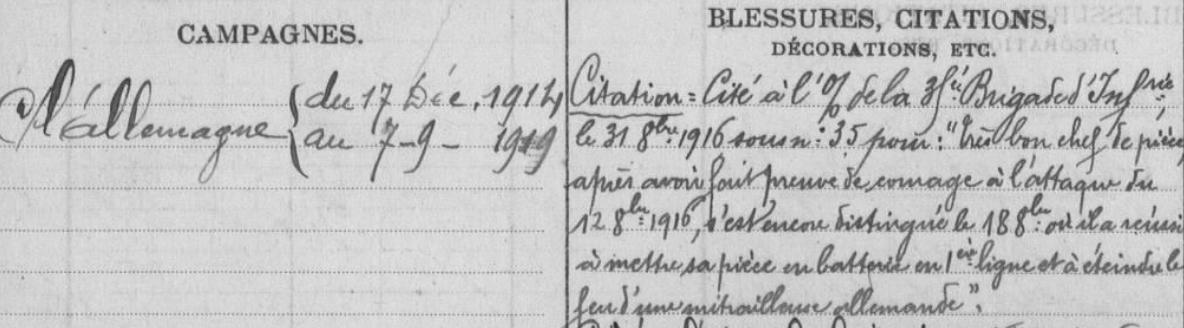 CAMPAGNES.
C/ l'Allemagne { du 17 Déc. 1914
au 7-9- 1919
BLESSURES, CITATIONS,
DÉCORATIONS, ETC.
Citation = Cité à l'O/ de la Bri­gade d'Infrie
le 31 8bre 1916 sous n: 35 pour: "très bon chef de pièce,
après avoir fait preuve de courage à l'attaque du
12 8bre 1916, s'est encore distingué le 18 8bre où il a réussi
à mettre sa pièce en batterie en 1ère ligne et à éteindre le
feu d'une mitrailleuse allemande".